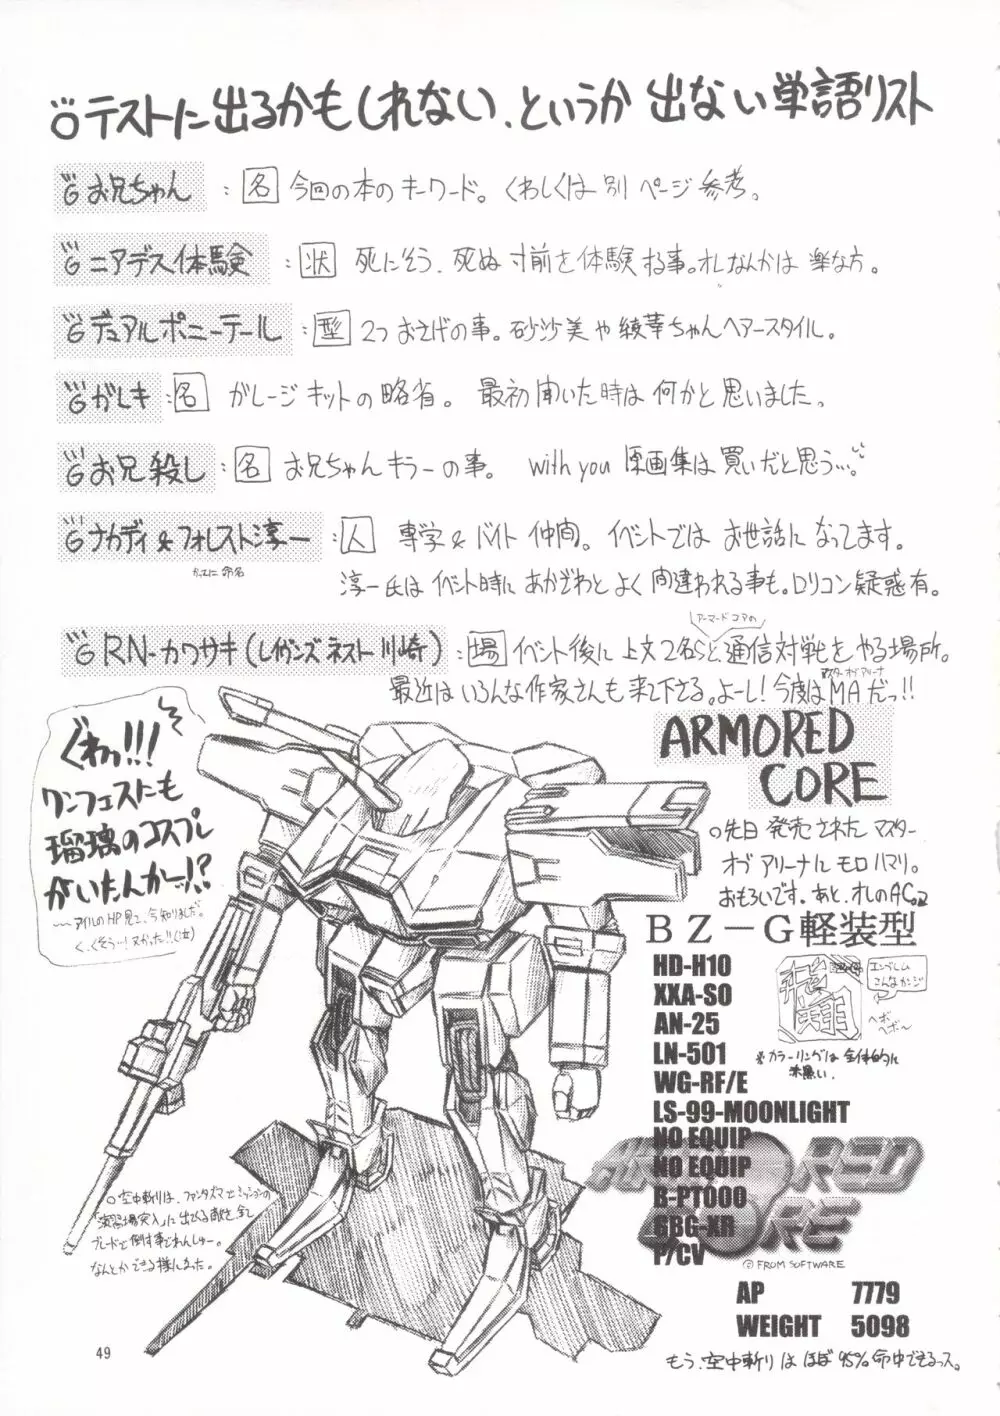 テストに出るかもしれない、というか 出ない単語リスト
お兄ちゃん : 名 今回の本のキーワード。くわしくは 別ページ参考。
ニアデス体験 : 状 死にそう、死ぬ寸前を体験する事。オレなんかは 楽な方。
デュアルポニーテール : 型 2つおさげの事。砂沙美や綾華ちゃんヘアースタイル。
ガレキ : 名 ガレージキットの略省。最初聞いた時は何かと思いました。
お兄殺し : 名 お兄ちゃんキラーの事。with you 原画集は買いだと思う…。
ナカディ&フォレスト淳一 : 人 専学&バイト仲間。イベントでは お世話になってます。
かってに命名
淳一氏はイベント時にあかざわとよく間違われる事も。ロリコン疑惑有。
アーマードコアの
RN-カワサキ(レイヴンズネスト川崎) : 場 イベント後に上文2名らと、通信対戦をやる場所。
マスターオブアリーナ
最近はいろんな作家さんも来て下さる。よーし!今度はMAだっ!!
ぐわっ!!!
ワンフェスにも
瑠璃のコスプレ
がいたんかーッ!?
〜〜アイルのHP見て、今知りました。
く、くそう…!ヌかった!!(泣)
ARMORED
CORE
○先日発売されたマスター
オブアリーナにモロハマリ。
おもろいです。あと、オレのACっス
BZ－G軽装型
HD-H10
XXA-SO
AN-25
LN-501
WG-RF/E
LS-99-MOONLIGHT
NO EQUIP
NO EQUIP
B-PT000
GBG-XR
P/CV
エンブレム
こんなカンジ
飛翔
ヘボ
ヘボ〜
※カラーリングは全体的に
赤黒い。
ARMORED
CORE
© FROM SOFTWARE
AP 7779
WEIGHT 5098
もう、空中斬りはほぼ95%命中できるっス。
○空中斬りは、ファンタズマでミッションの
「演習場突入」に出てくる敵を、全て
ブレードで倒す事でれんしゅー。
なんとかできる様になった。
49